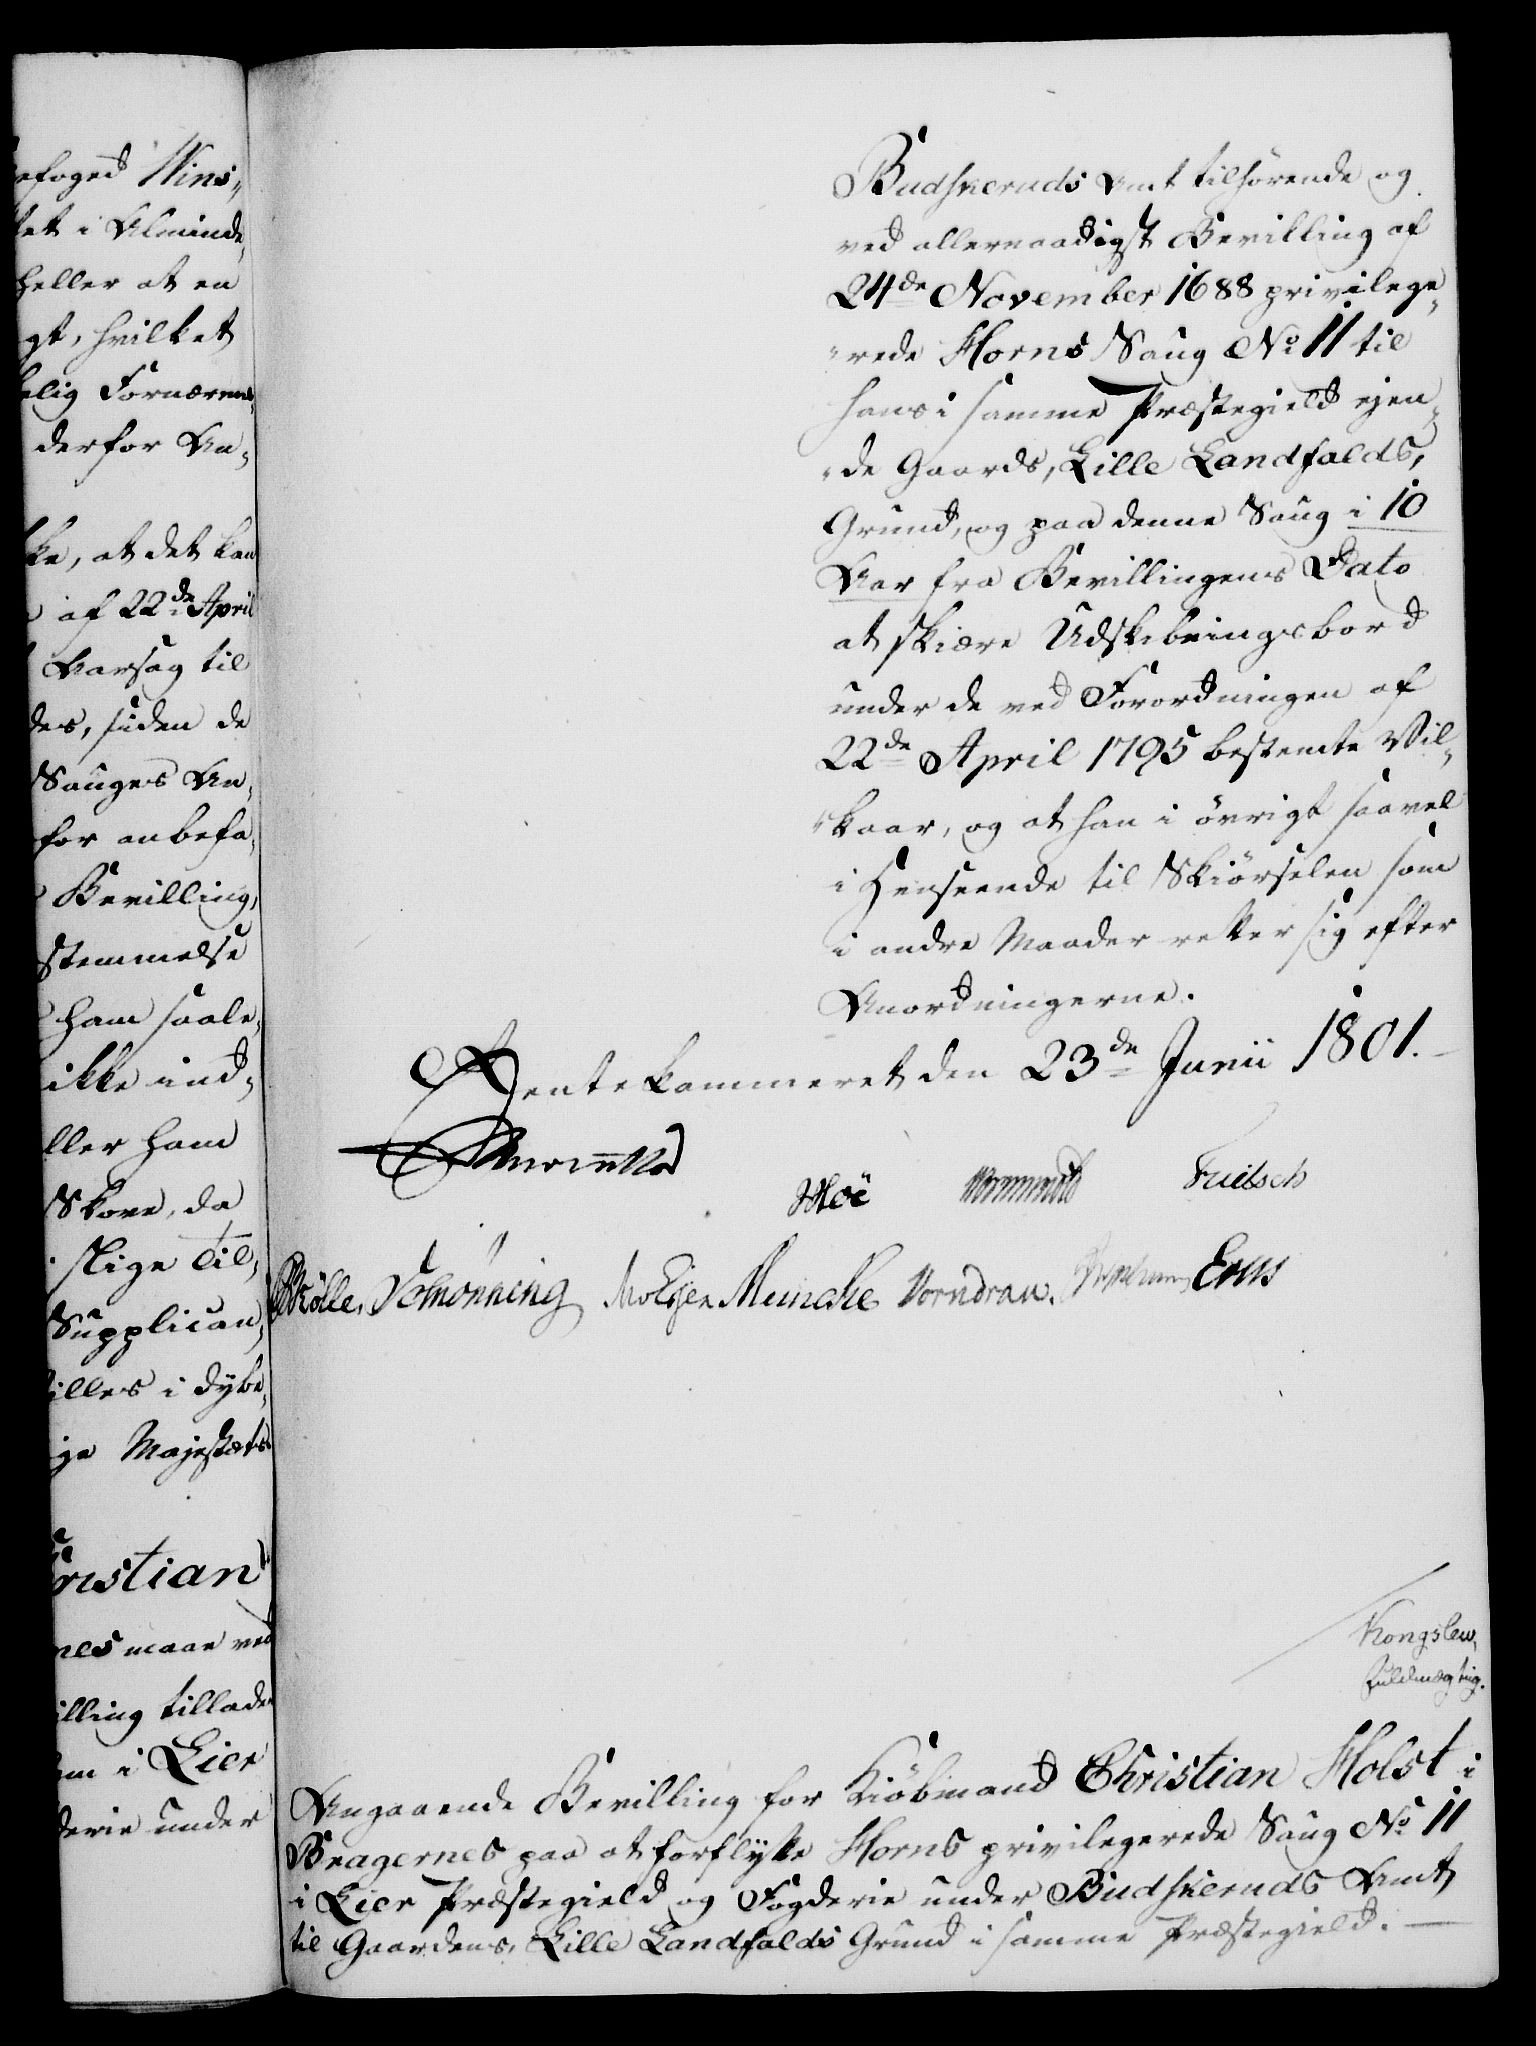 efoged Wins„
tet i Alminde„
heller at en
gt, hvilket
elig Fornærme„
derfor An„
ke, at det kan
af 22de April
Aarsag til
des, siden de
Sauges An„
for anbefa„
Bevilling,
stemmelse
ham saale„
ikke ind„
ller ham
Skove, da
slige Til„
Supplican„
illes i dybe„
ige Majestæts
hristian
nes maae ved
illing tillades
em i Lier
derie under
Budskeruds Amt tilhörende og
ved allernaadigst Bevilling af
24de November 1688 privilege„
„rede Horns Saug No 11 til
hans i samme Præstegield ejen„
„de Gaards, Lille Landfalds,
Grund, og paa denne Saug i 10
Aar fra Bevillingens Dato
at skiære Udskibningsbord
under de ved Forordningen af
22de April 1795 bestemte Vil„
„kaar, og at han i övrigt saavel
i Henseende til Skiörselen som
i andre Maader retter sig efter
Anordningerne.
Rentekammeret den 23de Junii 1801.
Moë Wormskiold Fuilsch
Schönning Meincke Vorndran.
Kongslew,
Fuldmægtig.
Angaaende Bevilling for Kiöbmand Christian Holst i
Bragernes paa at forflytte Horns privilegerede Saug No 11
i Lier Præstegield og Fogderie under Budskeruds Amt
til Gaardens, Lille Landfalds Grund i samme Præstegield.